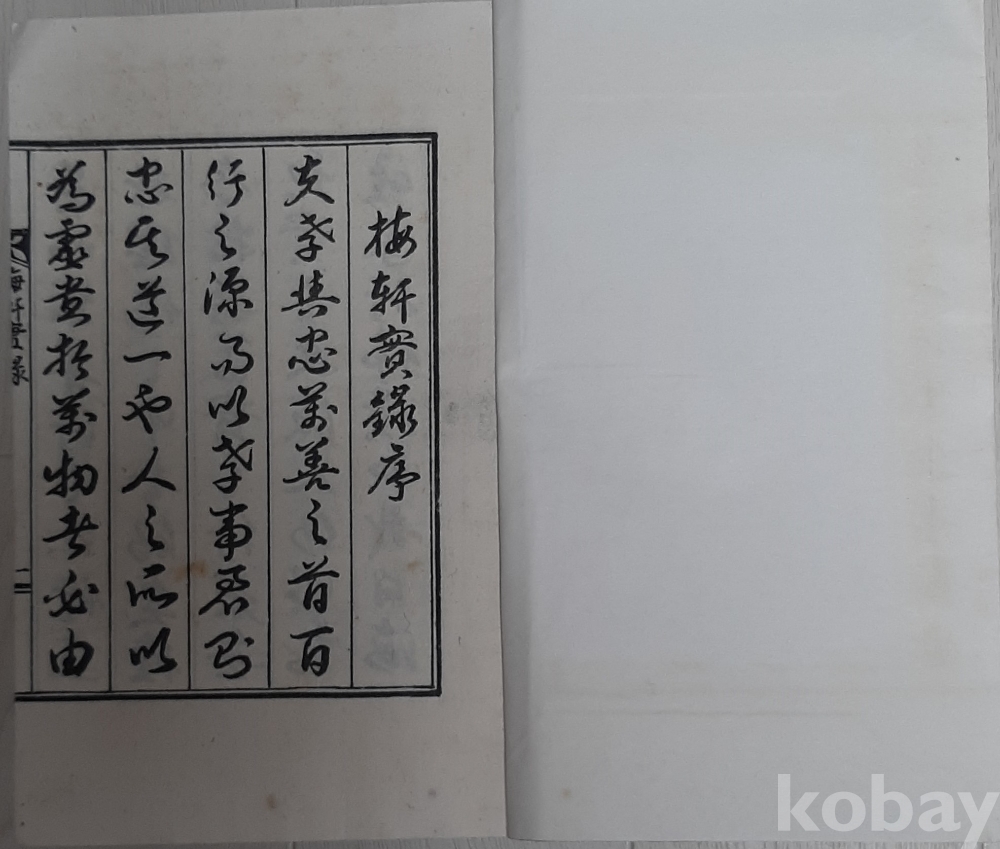 梅軒實錄序
夫孝其忠萬善之首百
行之源而以孝事君則
忠其道一也人之所以
為靈貴於萬物者必由
梅軒實錄
一
kobay